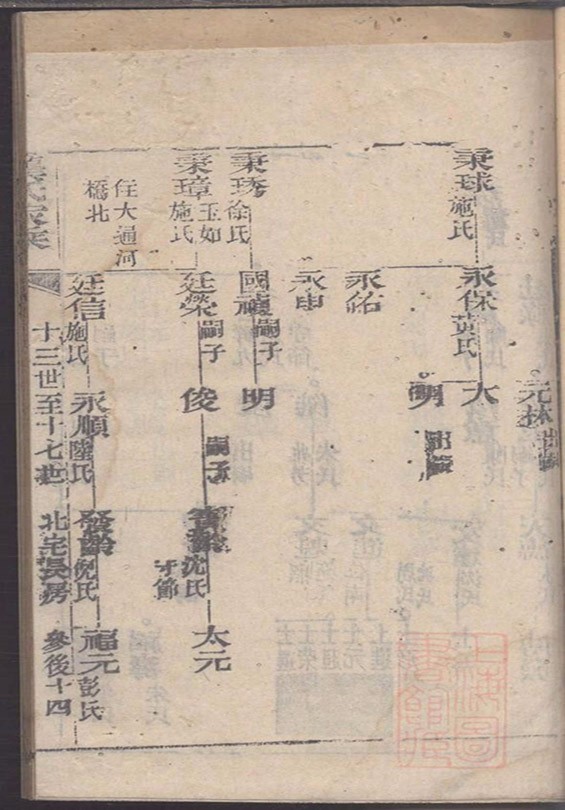 元林出嗣
秉球施氏
永保黃氏
大
明出嗣
永祐
永申
秉琇徐氏
國禎嗣子
明
秉璋玉如施氏
廷榮嗣子
俊嗣子
沈氏
太元
住大通河
橋北
廷信施氏
永順陸氏
發齡倪氏
福元彭氏
十三世至十七世
北宅長房
參後十四